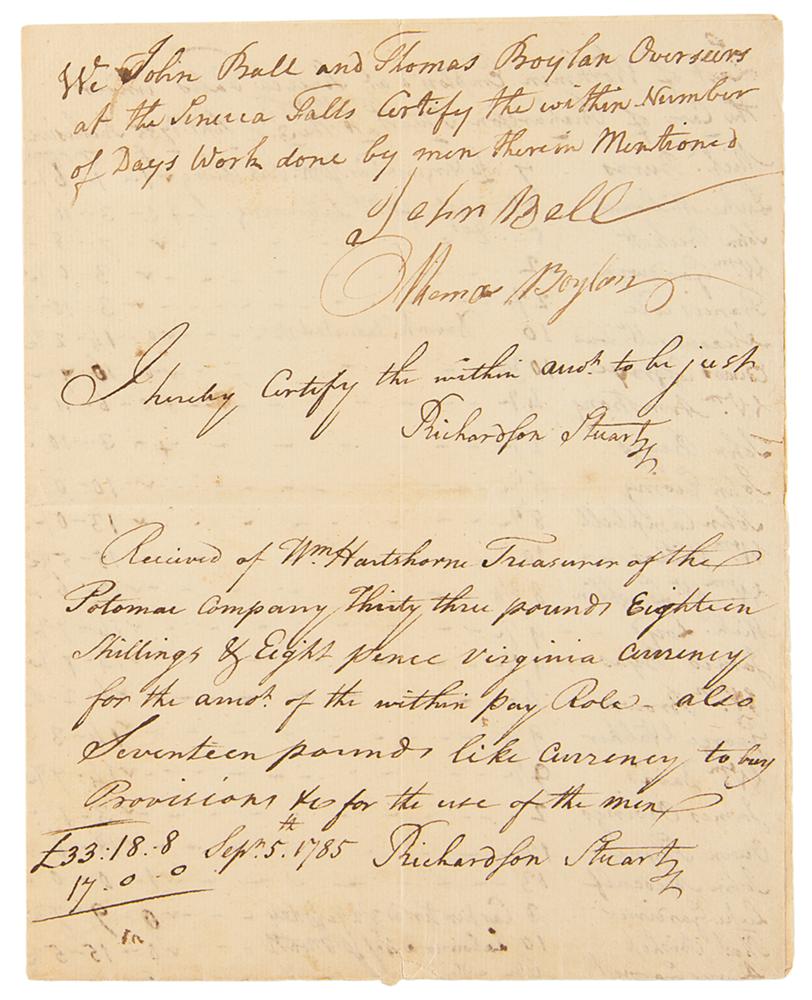 We John Ball and Thomas Boylan Overseers
at the Seneca Falls Certify the within Number
of Days Work done by men therein Mentioned
John Bell
Thomas Boylan
I hereby Certify the within amot. to be just
Richardson Stuart
Received of Wm Hartshorne Treasurer of the
Potomac Company Thirty three pounds Eighteen
Shillings & Eight pence Virginia Currency
for the amot. of the within pay Role - also
Seventeen pounds like Currency to buy
Provisions &c for the use of the men
£33:18:8 Sepr. 5th. 1785 Richardson Stuart
17. 0 . 0